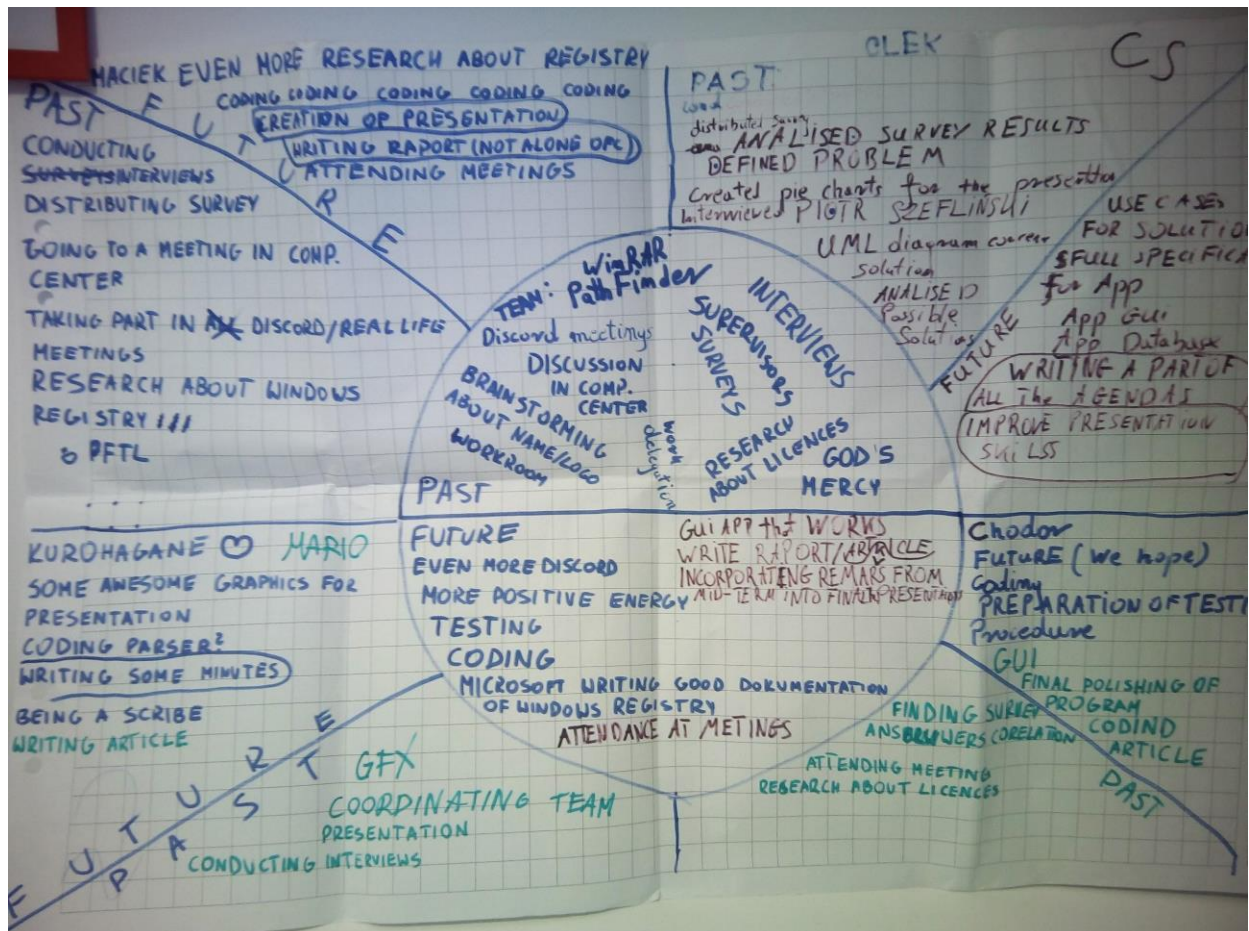 MACIEK EVEN MORE RESEARCH ABOUT REGISTRY
CODING CODING CODING CODING CODING
CREATION OF PRESENTATION
WRITING RAPORT (NOT ALONE OFC)
ATTENDING MEETINGS
FUTURE
PAST
CONDUCTING
INTERVIEWS
DISTRIBUTING SURVEY
GOING TO A MEETING IN COMP.
CENTER
TAKING PART IN DISCORD/REAL LIFE
MEETINGS
RESEARCH ABOUT WINDOWS
REGISTRY !!!
PFTL
...
OLEK
CS
PAST:
distributed survey
ANALISED SURVEY RESULTS
DEFINED PROBLEM
Created pie charts for the
Interviewed PIOTR SZEFLIŃSKI
UML diagram
solution
ANALISED
Possible
Solutions
FUTURE
USE CASES
FOR SOLUTIO
FULL SPECIFICA
for App
App GUI
App Database
WRITING A PART OF
ALL The AGENDAS
IMPROVE PRESENTATION
SKiLSS
TEAM: WinRAR
PathFinder
Discord meetings
DISCUSSION
IN COMP.
CENTER
BRAINSTORMING
ABOUT NAME/LOGO
WORKROOM
work
delegation
INTERVIEWS
SUPERVISORS
SURVEYS
RESEARCH
ABOUT LICENCES
GOD'S
MERCY
PAST
FUTURE
EVEN MORE DISCORD
MORE POSITIVE ENERGY
TESTING
CODING
MICROSOFT WRITING GOOD DOKUMENTATION
OF WINDOWS REGISTRY
ATTENDANCE AT METINGS
Gui APP tht WORKS
WRITE RAPORT/ARTICLE
INCORPORATING REMARS FROM
MID-TERM INTO FINAL PRESENTATION
KUROHAGANE ♡ MARIO
SOME AWESOME GRAPHICS FOR
PRESENTATION
CODING PARSER?
WRITING SOME MINUTES
BEING A SCRIBE
WRITING ARTICLE
FUTURE
PAST
GFX
COORDINATING TEAM
PRESENTATION
CONDUCTING INTERVIEWS
Chodor
FUTURE (we hope)
Coding
PREPARATION OF TESTI
Procedure
GUI
FINAL POLISHING OF
PROGRAM
CODIND
ARTICLE
PAST
FINDING SURVEY
ANSWERS CORELATION
ATTENDING MEETING
RESEARCH ABOUT LICENCES